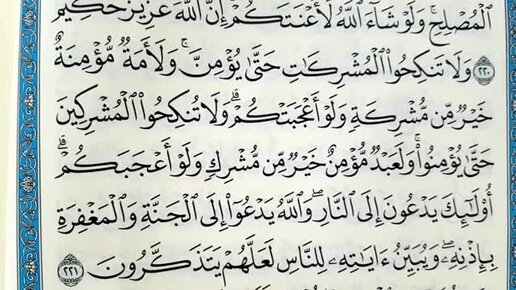 ٱلْمُصْلِحِ ۚ وَلَوْ شَآءَ ٱللَّهُ لَأَعْنَتَكُمْ ۚ إِنَّ ٱللَّهَ عَزِيزٌ حَكِيمٌ
٢٢٠ وَلَا تَنكِحُوا۟ ٱلْمُشْرِكَٰتِ حَتَّىٰ يُؤْمِنَّ ۚ وَلَأَمَةٌ مُّؤْمِنَةٌ
خَيْرٌ مِّن مُّشْرِكَةٍ وَلَوْ أَعْجَبَتْكُمْ ۗ وَلَا تُنكِحُوا۟ ٱلْمُشْرِكِينَ
حَتَّىٰ يُؤْمِنُوا۟ ۚ وَلَعَبْدٌ مُّؤْمِنٌ خَيْرٌ مِّن مُّشْرِكٍ وَلَوْ أَعْجَبَكُمْ ۗ
أُو۟لَٰٓئِكَ يَدْعُونَ إِلَى ٱلنَّارِ ۖ وَٱللَّهُ يَدْعُوٓا۟ إِلَى ٱلْجَنَّةِ وَٱلْمَغْفِرَةِ
بِإِذْنِهِۦ ۖ وَيُبَيِّنُ ءَايَٰتِهِۦ لِلنَّاسِ لَعَلَّهُمْ يَتَذَكَّرُونَ ٢٢١